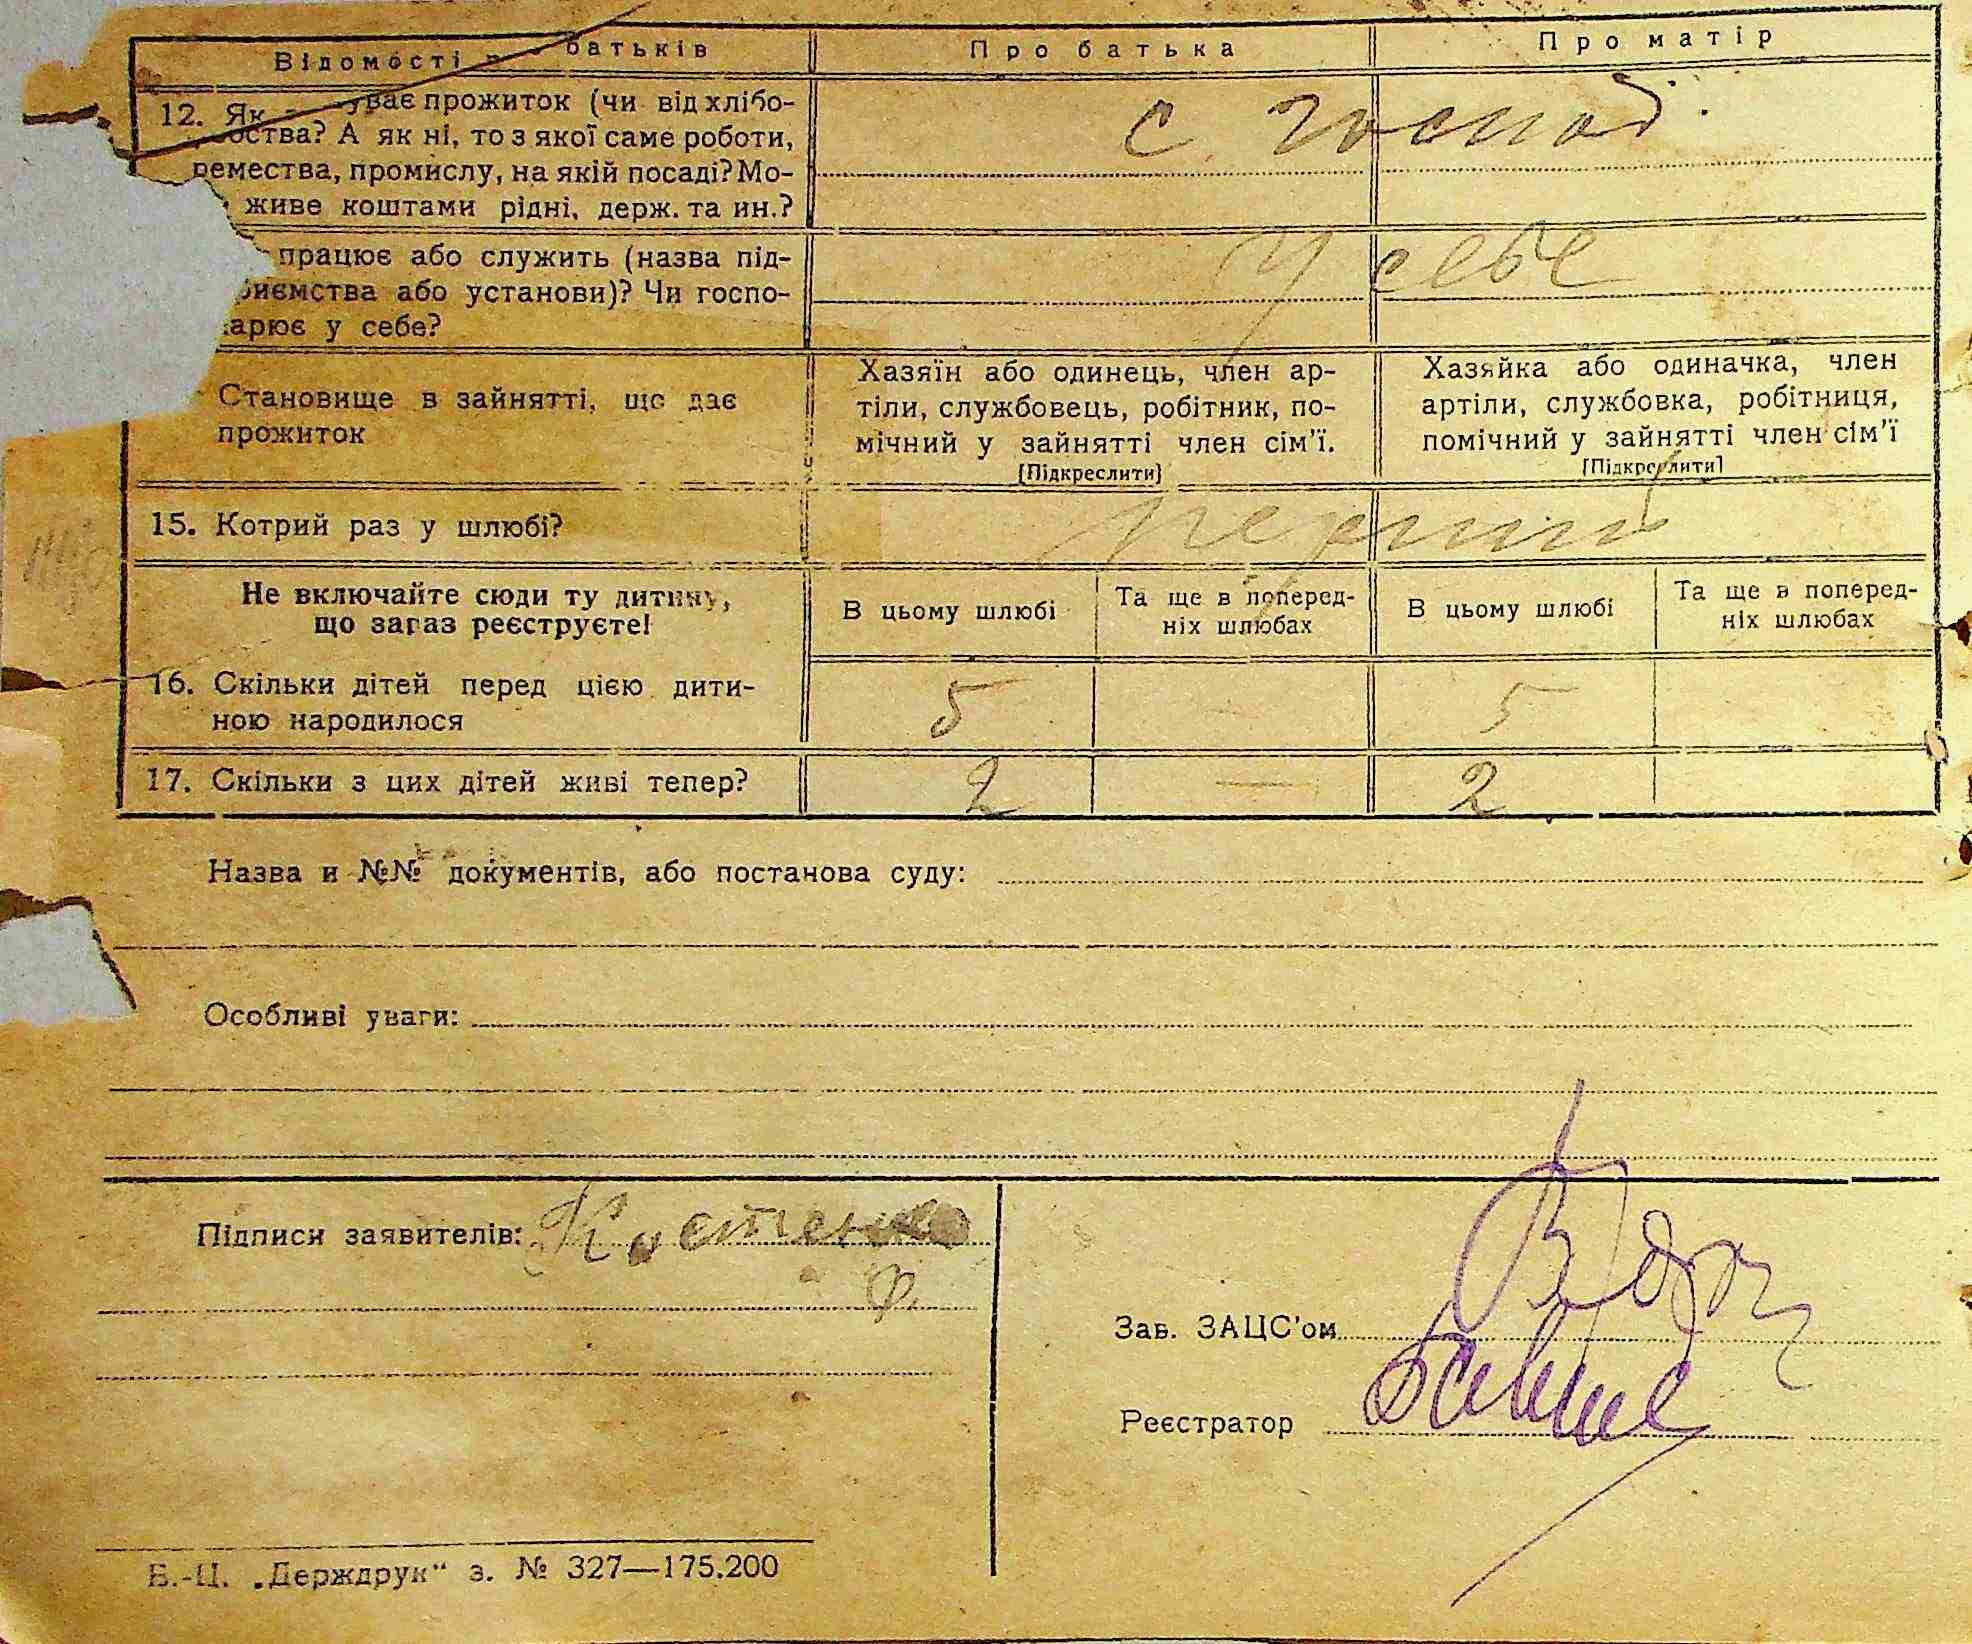 Відомості батьків Про батька Про матір
12. Як ував прожиток (чи від хлібо-
ства? А як ні, то з якої саме роботи,
ремества, промислу, на якій посаді? Мо-
живе коштами рідні, держ. та ин.?
с господ.
працює або служить (назва під-
риємства або установи)? Чи госпо-
дарює у себе?
у себе
Становище в зайнятті, що дає
прожиток
Хазяїн або одинець, член ар-
тіли, службовець, робітник, по-
мічний у зайнятті член сім'ї.
[Підкреслити]
Хазяйка або одиначка, член
артіли, службовка, робітниця,
помічний у зайнятті член сім'ї
[Підкреслити]
15. Котрий раз у шлюбі?
перший
Не включайте сюди ту дитину,
що зараз реєструєте!
В цьому шлюбі
Та ще в поперед-
ніх шлюбах
В цьому шлюбі
Та ще в поперед-
ніх шлюбах
16. Скільки дітей перед цією дити-
ною народилося
5 — 5
17. Скільки з цих дітей живі тепер? 2 — 2
Назва и №№ документів, або постанова суду:
Особливі уваги:
Підписи заявителів: Костенко
Ф.
Зав. ЗАЦС'ом
Реєстратор
Б.-Ц. „Держдрук“ з. № 327—175.200